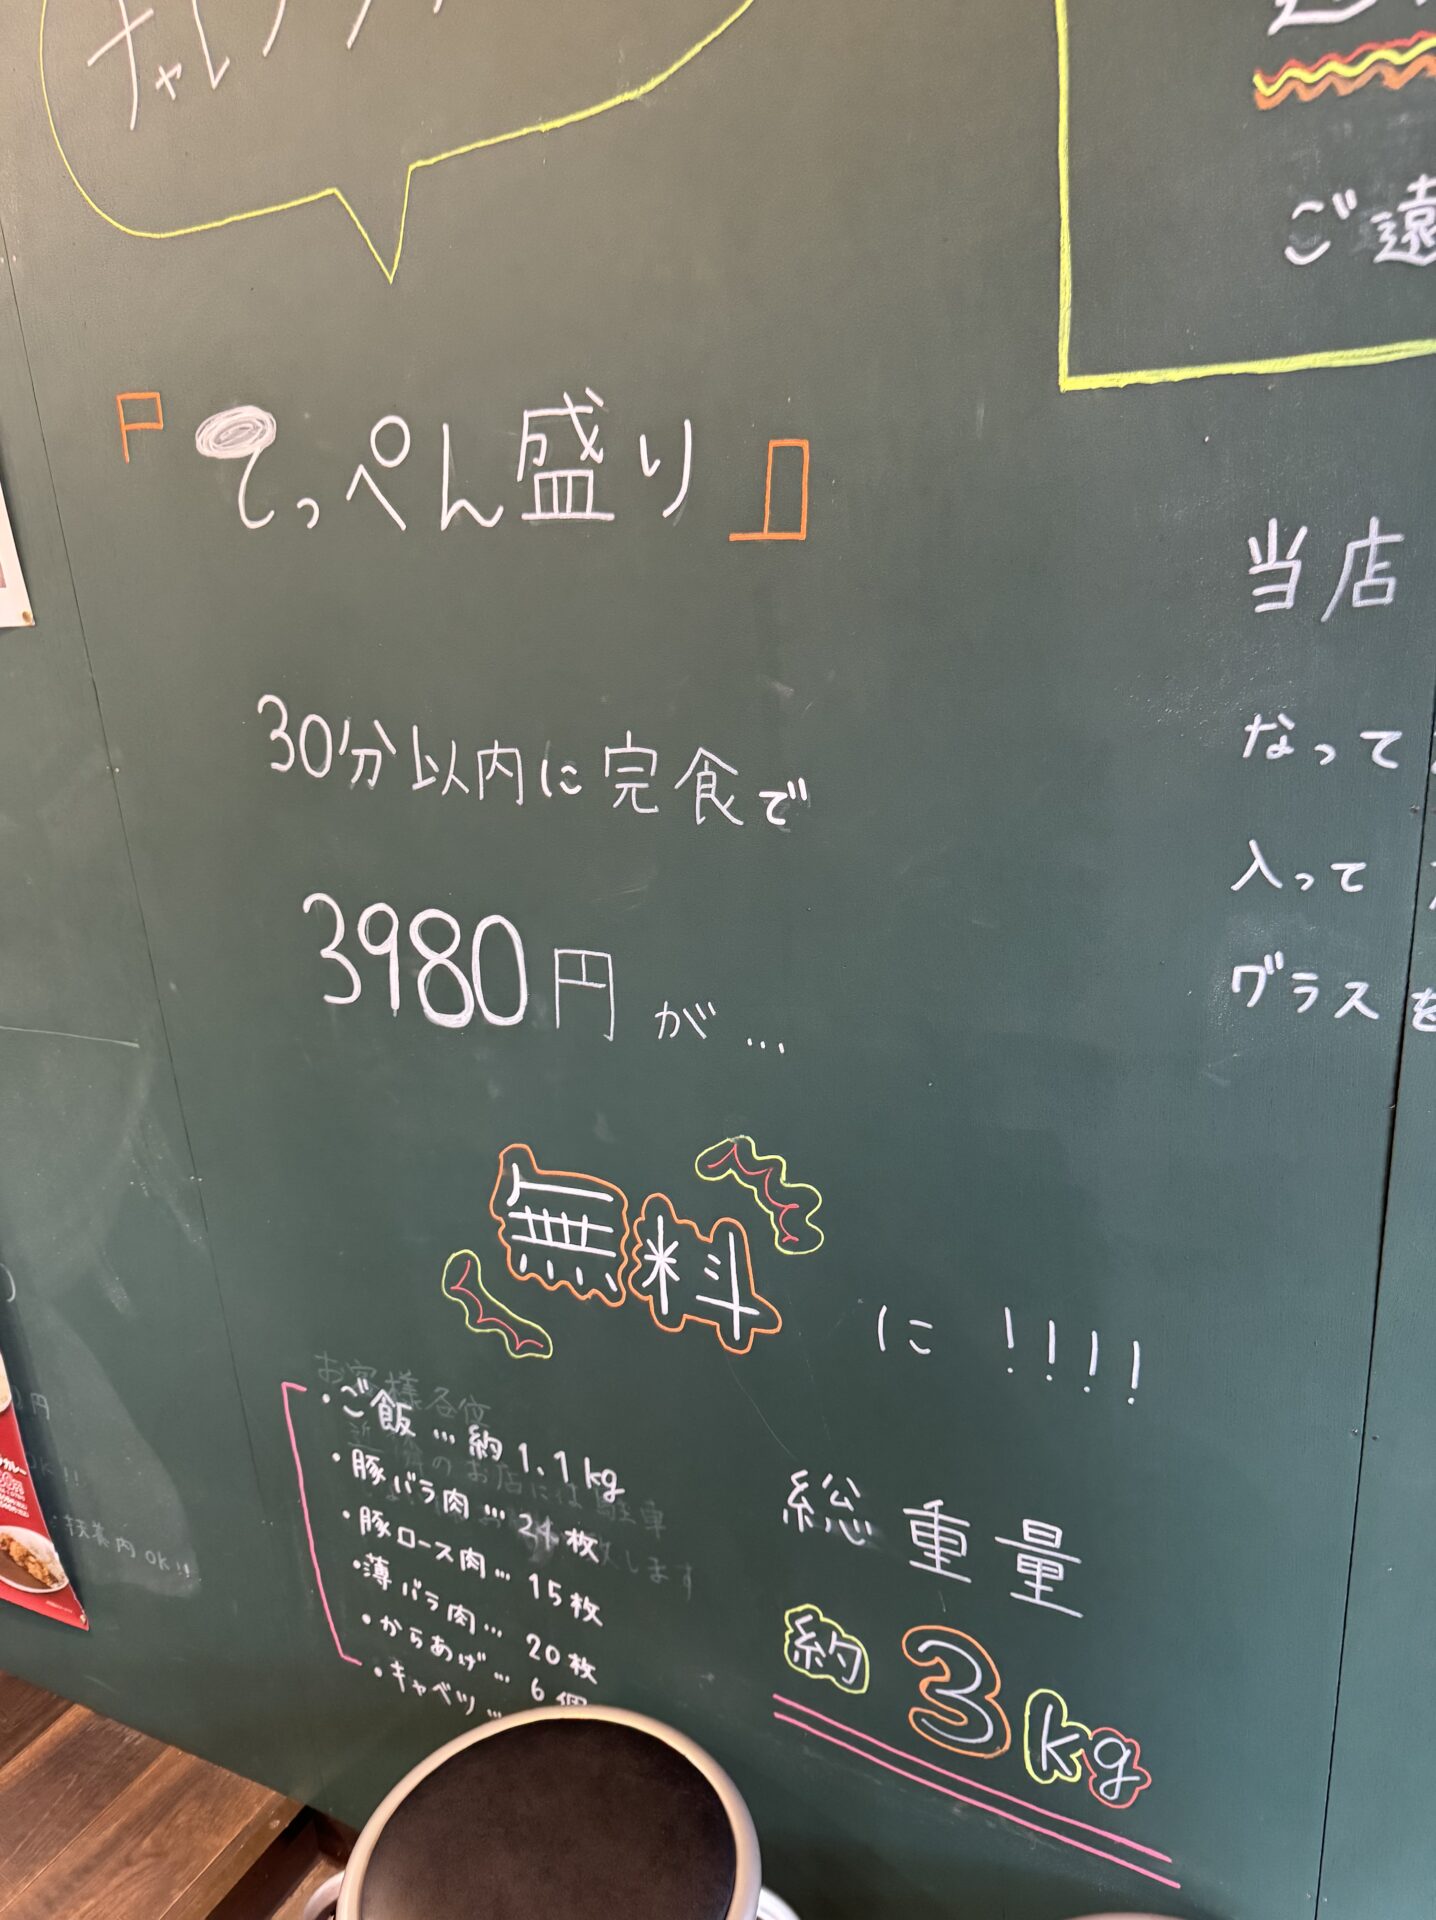 チャレンジ
『てっぺん盛り』
30分以内に完食で
3980円が…
無料に!!!!
・ご飯…約1.1kg
・豚バラ肉…24枚
・豚ロース肉…15枚
・薄バラ肉…20枚
・からあげ…6個
・キャベツ…
総重量
約3kg
ご遠
当店
なって
入って
グラスを
お客様各位
近隣のお店には駐車
します
円
OK!!
OK!!